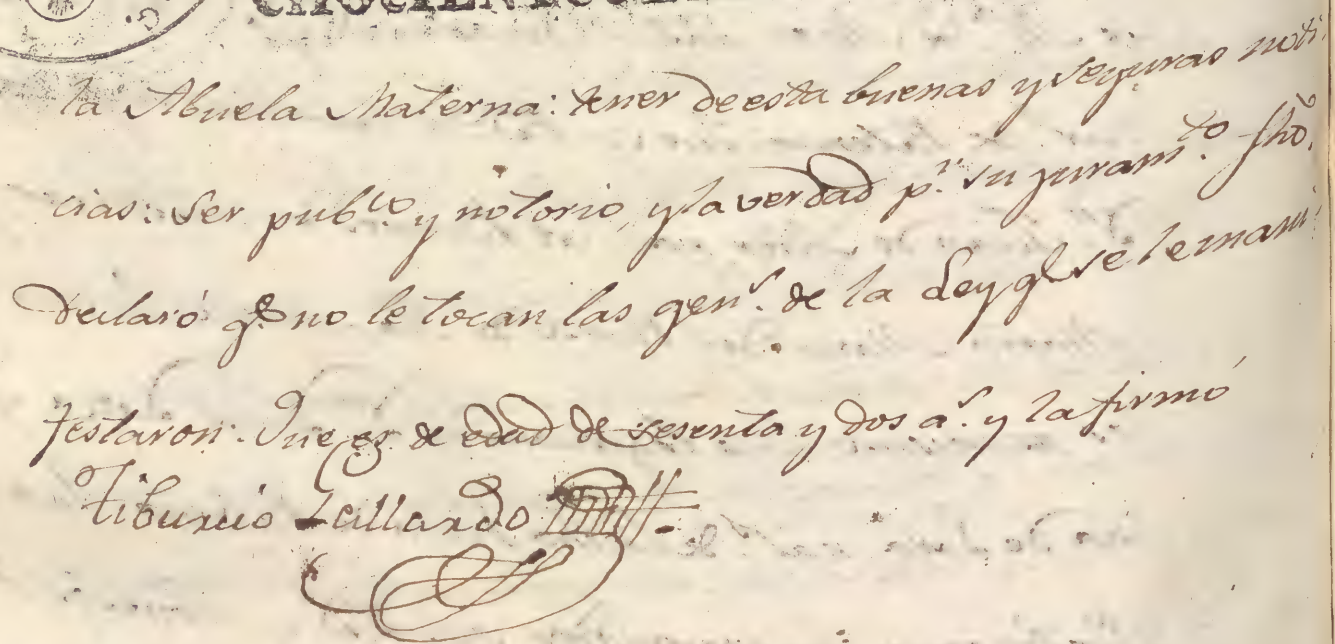 la Abuela Materna: tener de esta buenas y seguras noti
cias: ser pub.co y notorio, y la verdad p.r su juram.to fho,
declaró q.e no le tocan las gen.s de la Ley q.e se le mani
festaron. Que es de edad de sesenta y dos a.s y la firmó
Tiburcio Gallardo